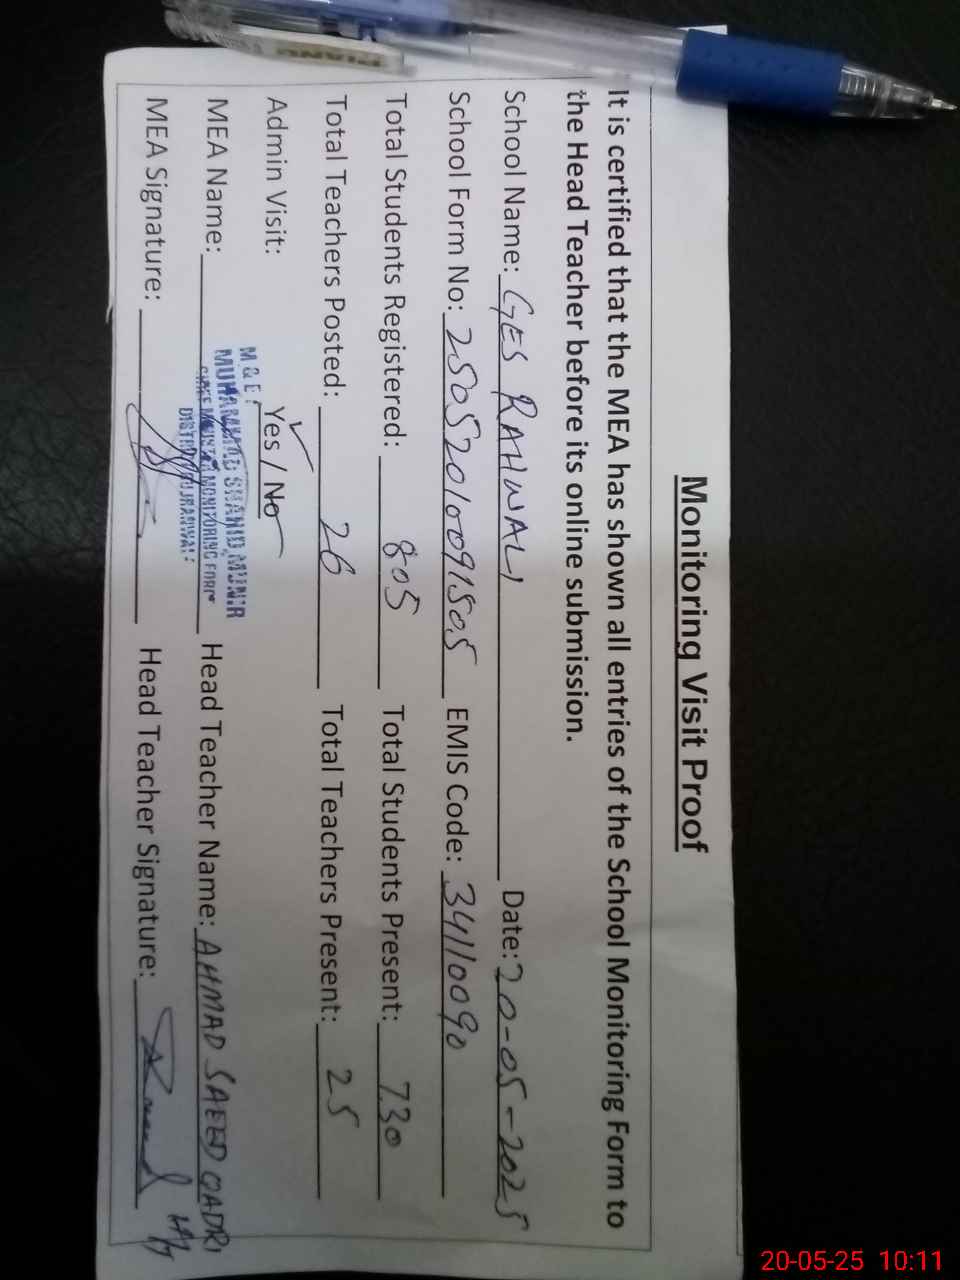 Monitoring Visit Proof
It is certified that the MEA has shown all entries of the School Monitoring Form to
the Head Teacher before its online submission.
School Name: GES RAHWALI Date: 20-05-2025
School Form No: 25052010091505 EMIS Code: 34110090
Total Students Registered: 805 Total Students Present: 730
Total Teachers Posted: 26 Total Teachers Present: 25
Admin Visit: Yes / No
M & E
MUHAMMAD SHAHID MUNIR
CHIEF MINISTER MONITORING FORCE
DISTRICT GUJRANWALA
MEA Name: Head Teacher Name: AHMAD SAEED QADRI
MEA Signature: Head Teacher Signature:
PIANO
20-05-25 10:11